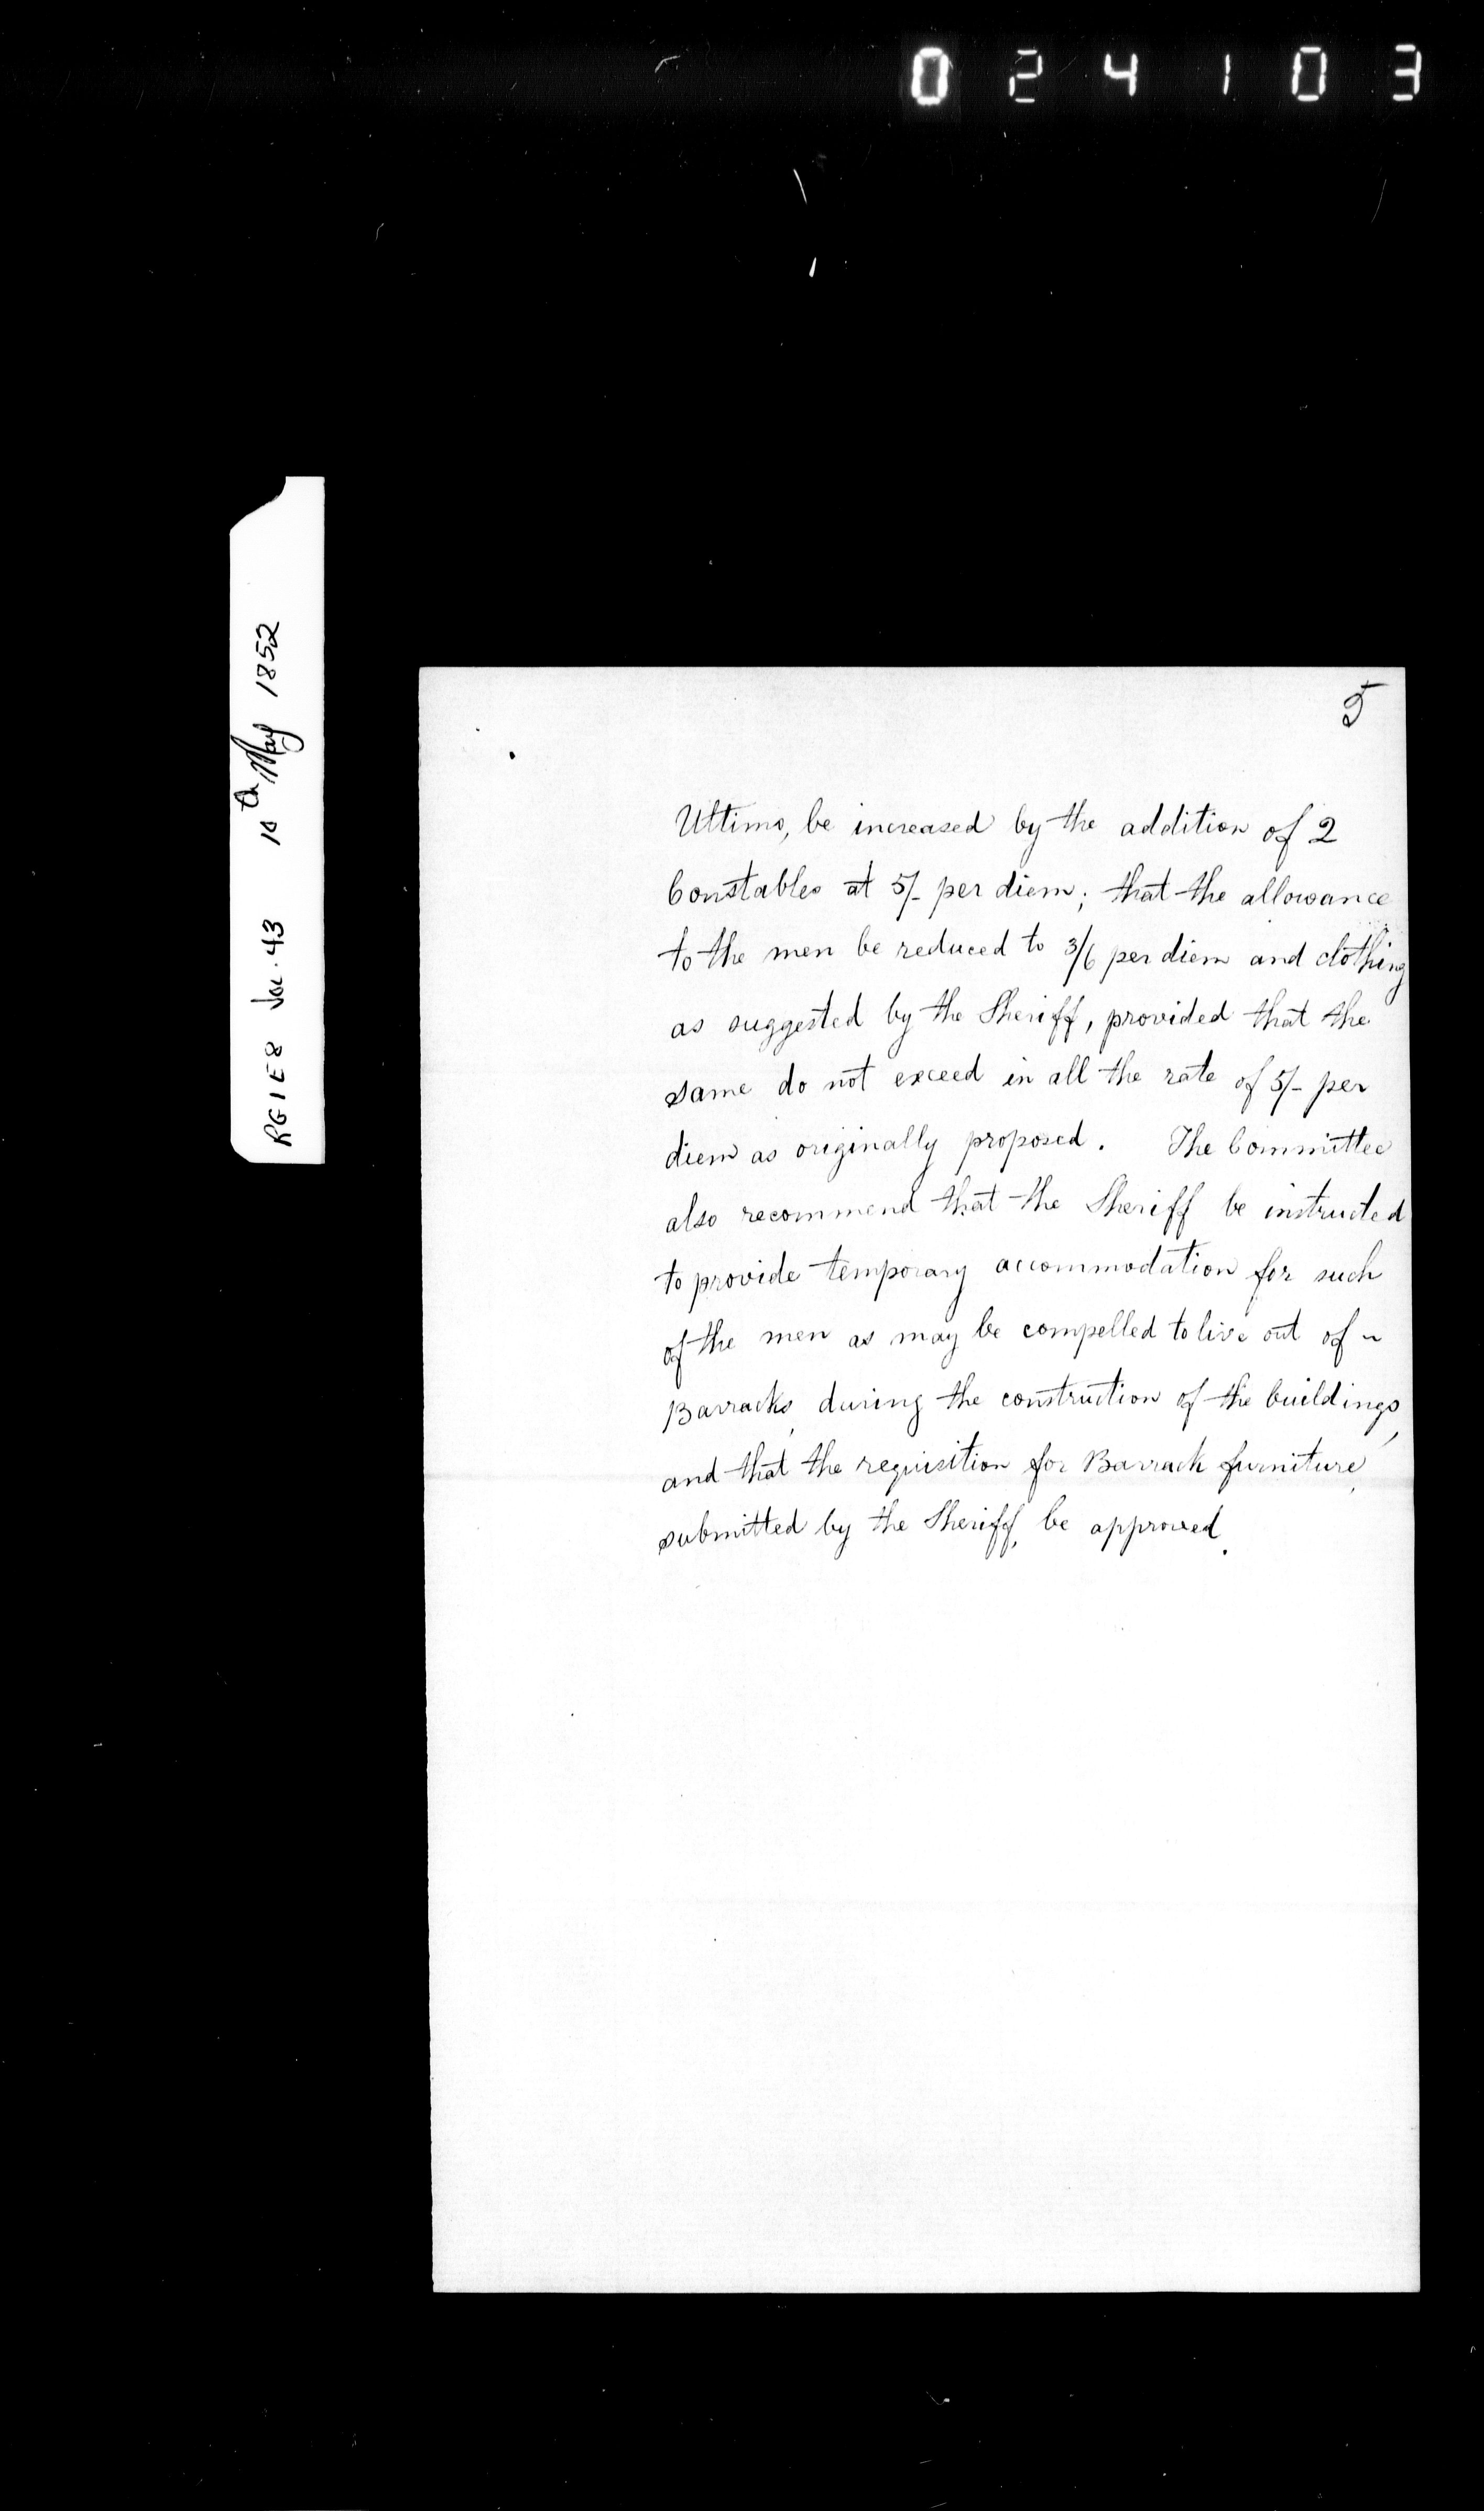 024103
RG1E8 Vol. 43 10th May 1852
5
Ultimo, be increased by the addition of 2
Constables at 5/- per diem; that the allowance
to the men be reduced to 3/6 per diem and clothing
as suggested by the Sheriff, provided that the
same do not exceed in all the rate of 5/- per
diem as originally proposed. The Committee
also recommend that the Sheriff be instructed
to provide temporary accommodation for such
of the men as may be compelled to live out of ~
Barracks, during the construction of the buildings,
and that the requisition for Barrack furniture,
submitted by the Sheriff, be approved.